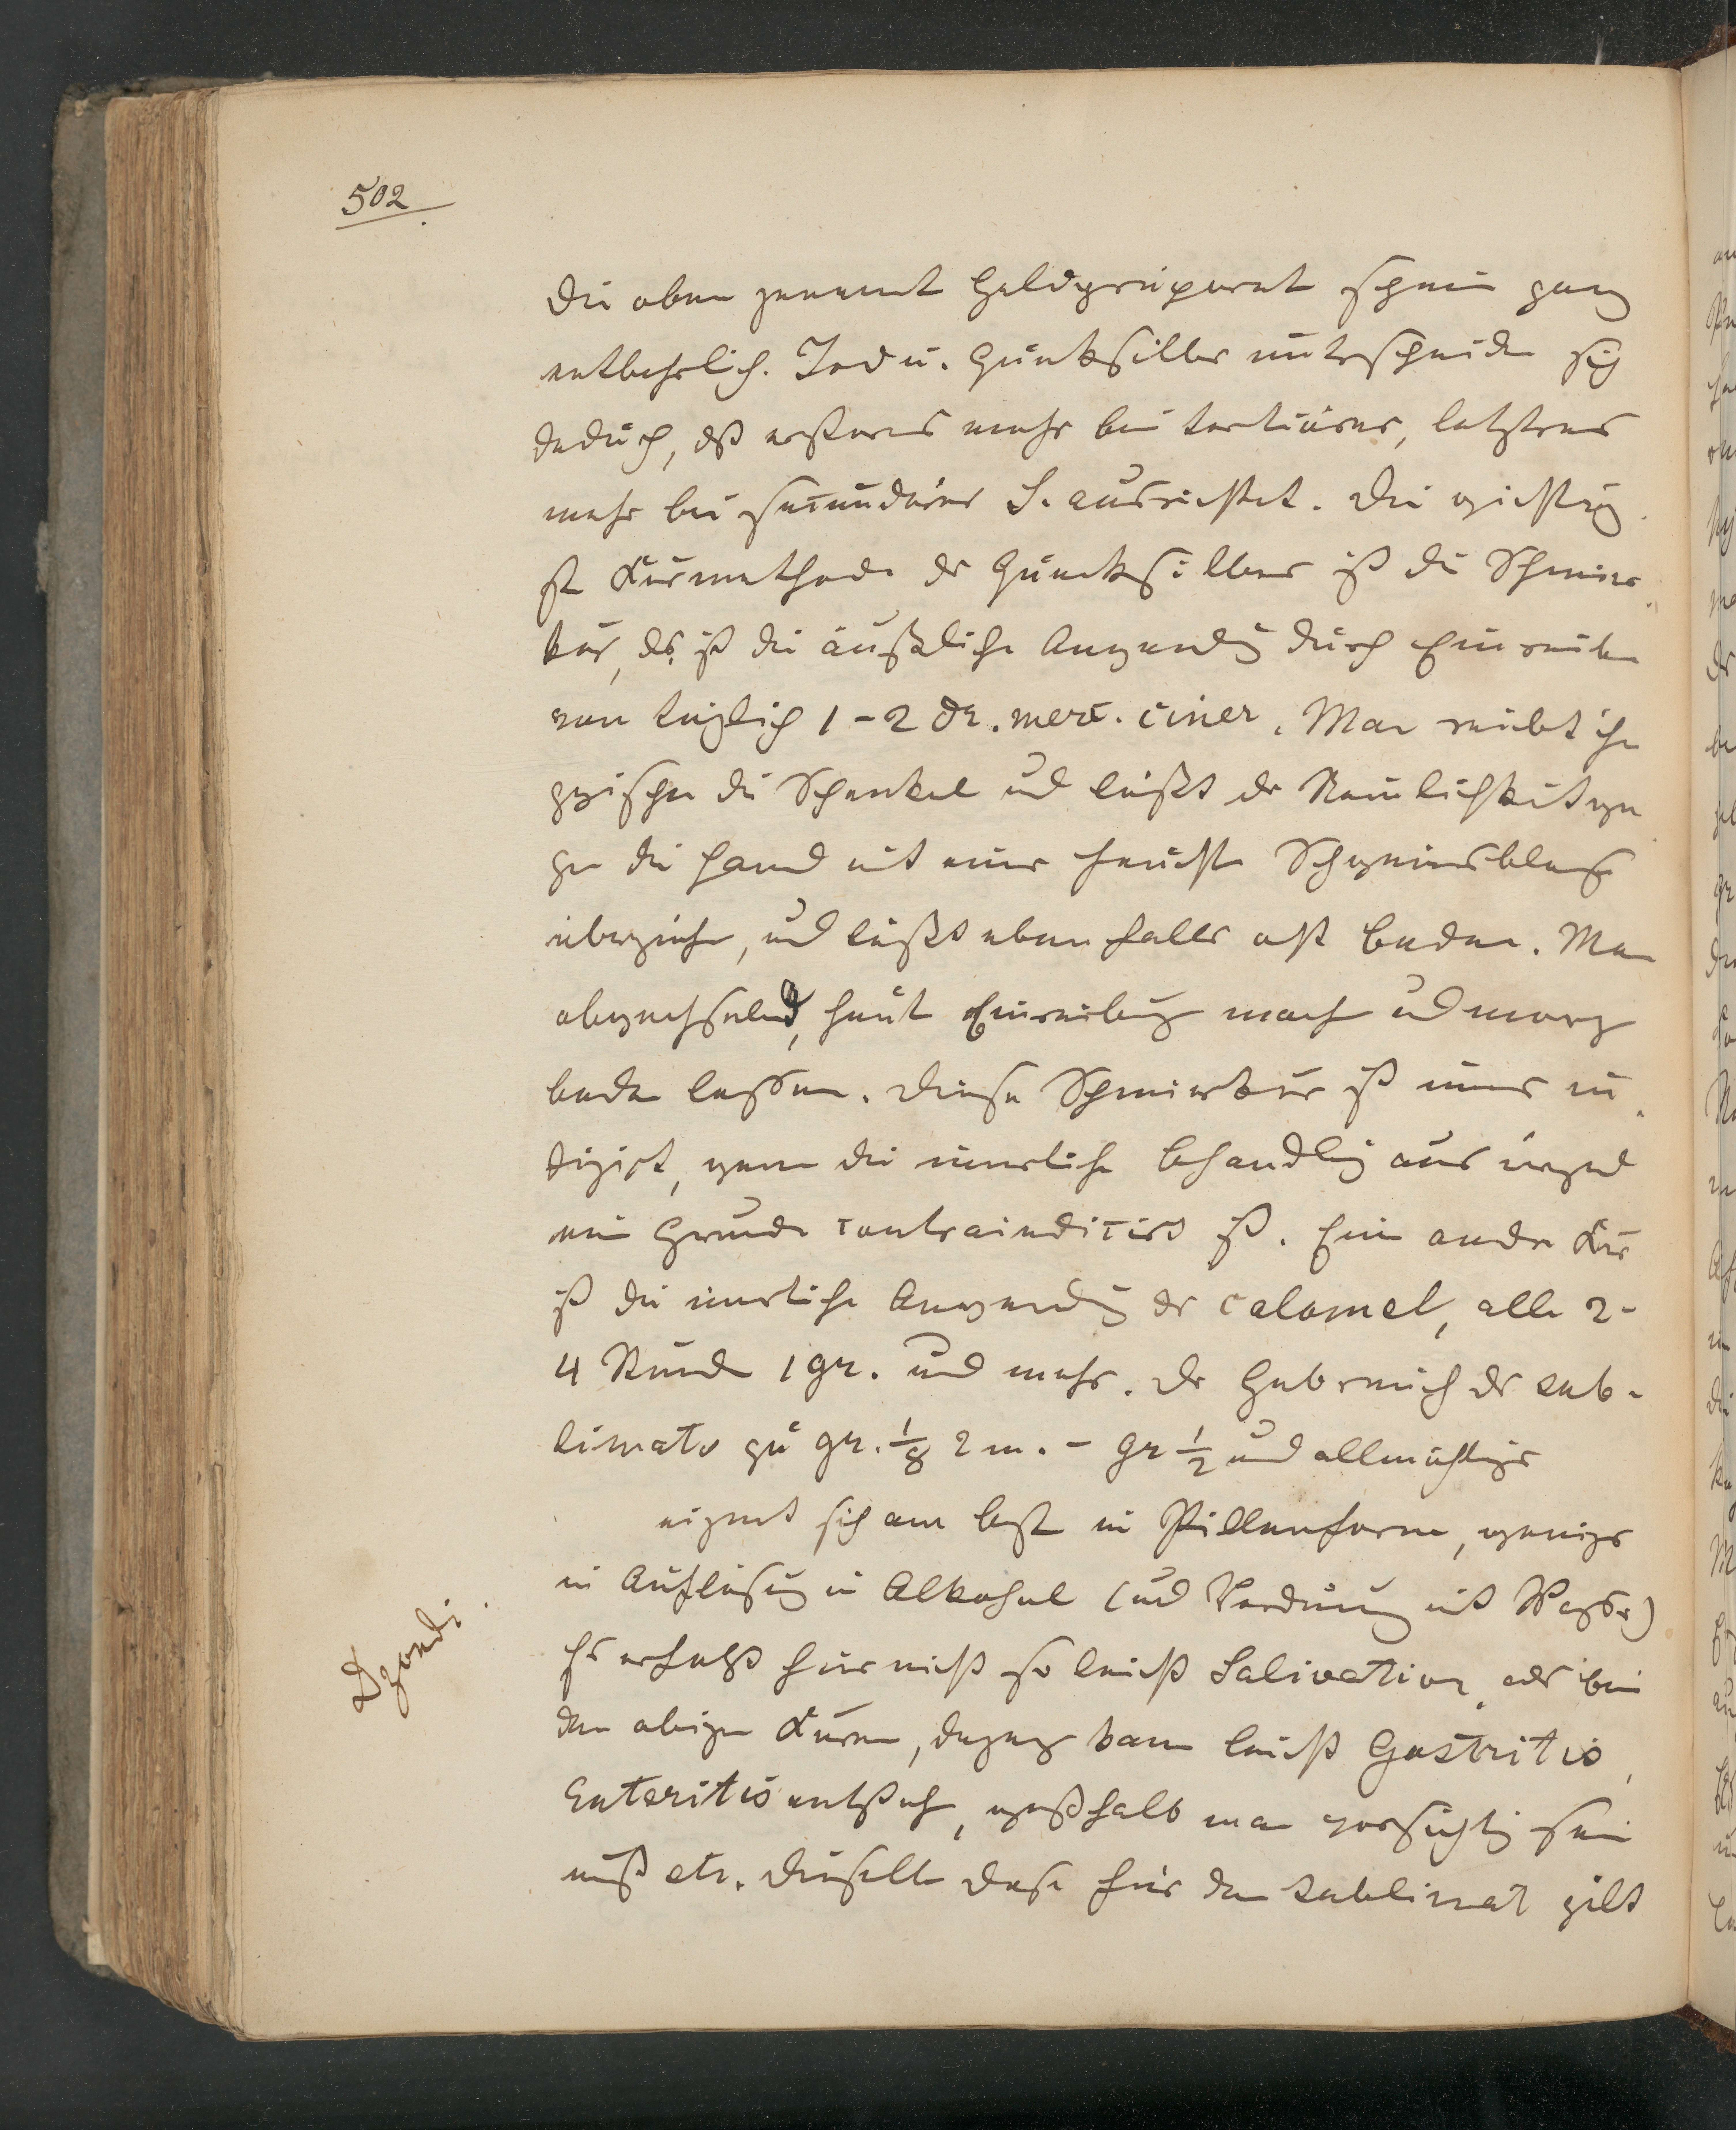 502
Die oben genannt Goldpräparat scheine ganz
entbehrlich. Jod u. Quecksilber unterscheide sich
dadurch, dß ersteres mehr bei tertiärer, letzteres
mehr bei secundärer S. ausrichtet. Die wichtig
ste Kurmethode des Quecksilbers ist die Schmier
kur, ds. ist die äußerliche Anwendg durch Einreibe
von täglich 1-2 Dr. merc. ciner. Man reibt ihn
zwische die Schenkel und läßt der Reinlichkeit we
ge die Hand mit einer feuchte Schweinsblase
überziehe, und läßt ebenfalls oft baden. Man
abwechselnd, heute Einreibung mache und morg
bade lassen. Diese Schmierkur ist immer in
digirt, wenn die innerliche Behandlg aus irgend
eine Grunde contraindicirt ist. Eine andre Kur
ist die innerliche Anwendg des Calomel, alle 2-
4 Stunde 1 gr. und mehr. Der Gebrauch des sub-
limats zu gr. 1/8 2 m. - gr 1/2 und allmähliger
eignet sich am best in Pillenform, weniger
in Auflösung in Alkohol (und Verdünng mit Wasser)
Dzondi.
Es erfolgt hier nicht so leicht Salivation als bei
den obigen Kuren, dageg kann leicht Gastritis,
Enteritis entsteh, weßhalb man vorsichtig sein
muß etc. Dieselbe Dose für den Sublimat gilt